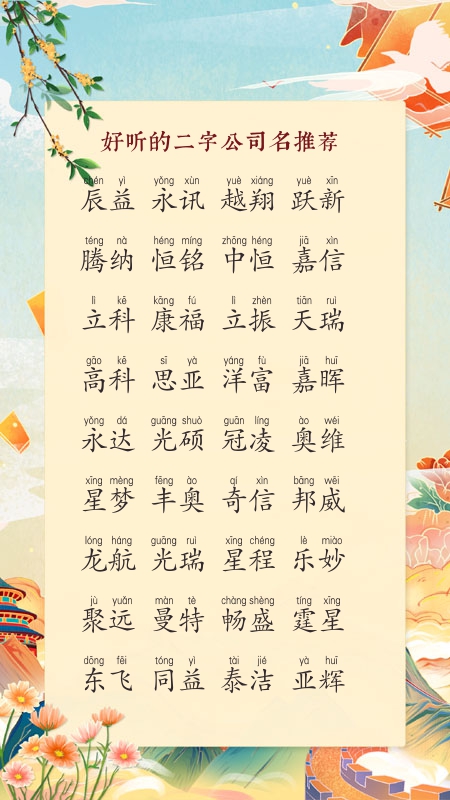 好听的二字公司名推荐
chén yì yǒng xùn yuè xiáng yuè xīn
辰益 永讯 越翔 跃新
téng nà héng míng zhōng héng jiā xìn
腾纳 恒铭 中恒 嘉信
lì kē kāng fú lì zhèn tiān ruì
立科 康福 立振 天瑞
gāo kē sī yà yáng fù jiā huī
高科 思亚 洋富 嘉晖
yǒng dá guāng shuò guān líng ào wéi
永达 光硕 冠凌 奥维
xīng mèng fēng ào qí xìn bāng wēi
星梦 丰奥 奇信 邦威
lóng háng guāng ruì xīng chéng lè miào
龙航 光瑞 星程 乐妙
jù yuǎn màn tè chàng shèng tíng xīng
聚远 曼特 畅盛 霆星
dōng fēi tóng yì tài jié yà huī
东飞 同益 泰洁 亚辉